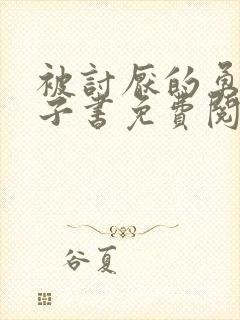 被討厭的勇
子書免費閱
谷夏